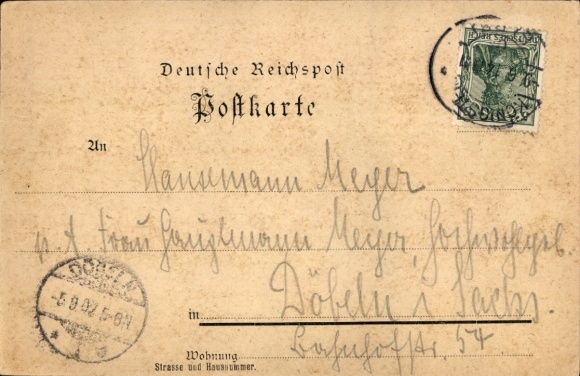 Deutsche Reichspost
Postkarte
An
Hauptmann Meyer
u. s. Frau Hauptmann Meyer, Hochwohlgeb.
DÖBELN
-5 9 02 5-6N
in Döbeln i Sachs.
Bahnhofstr. 54
Wohnung
Strasse und Hausnummer.